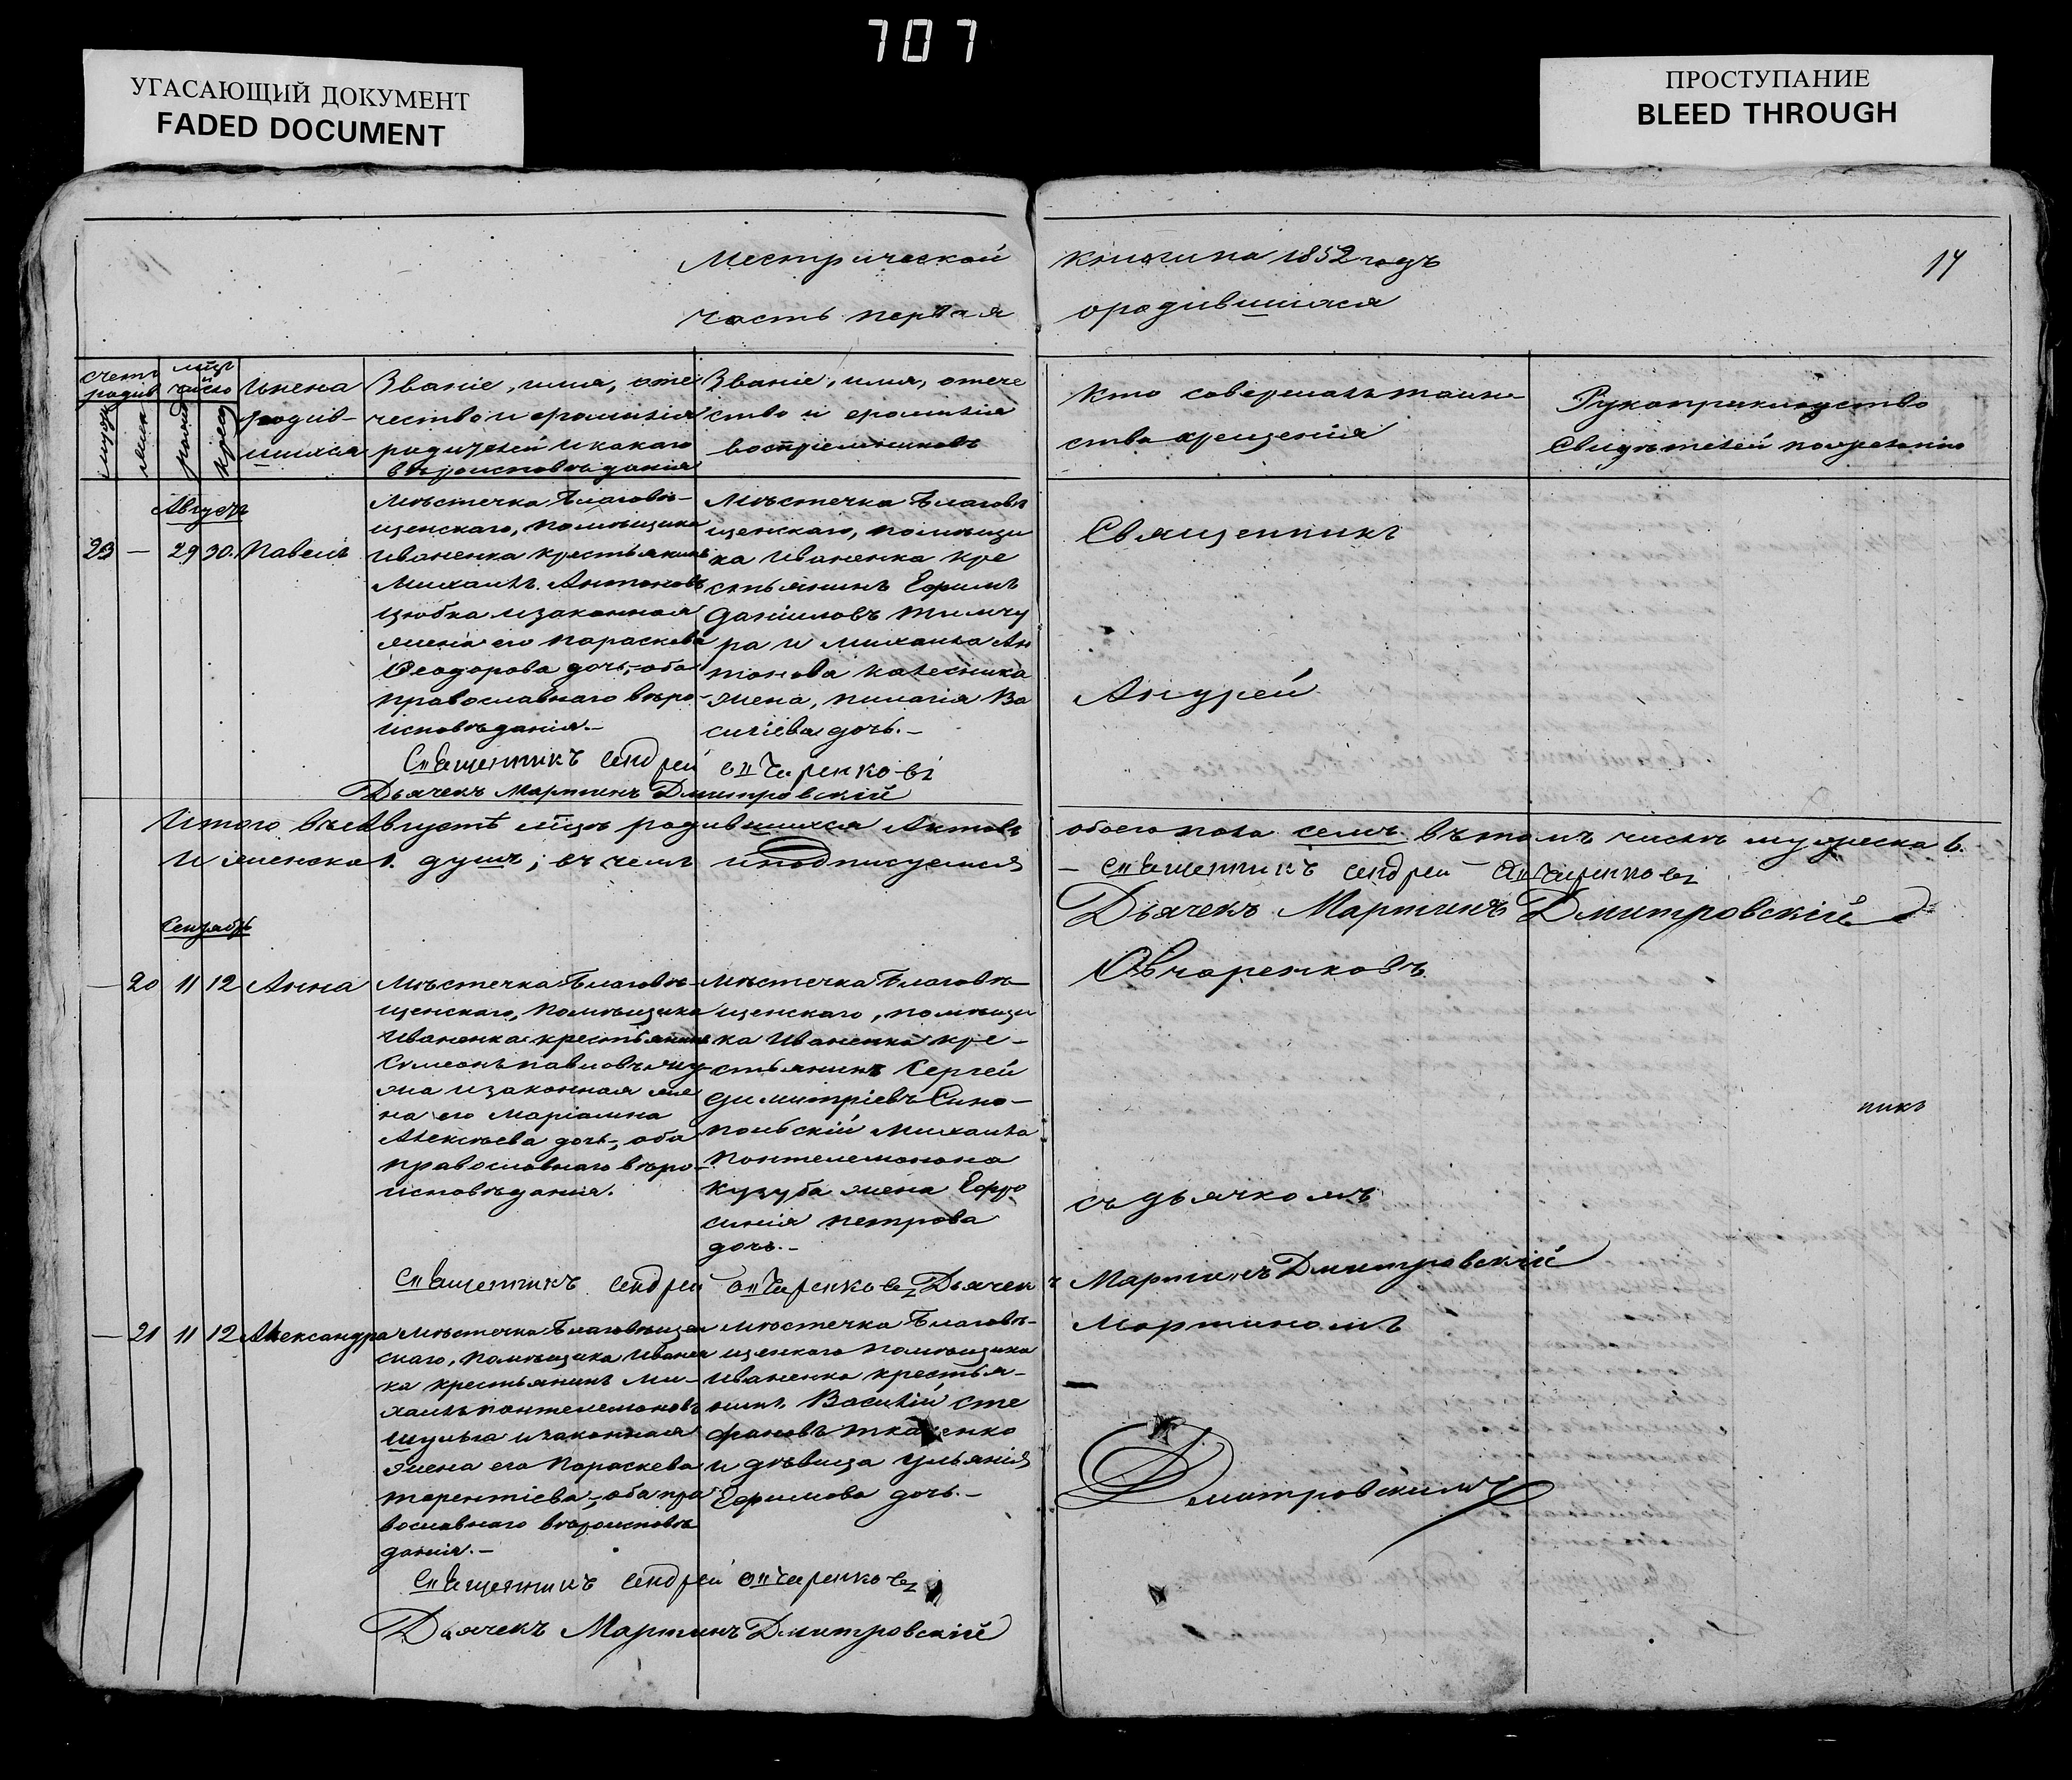 707
УГАСАЮЩИЙ ДОКУМЕНТ
FADED DOCUMENT
ПРОСТУПАНИЕ
BLEED THROUGH
Местрической
часть первая
книги на 1852 годъ
о родившихся
14
счетъ родив
муж
жен
мѣц и число
рожд
крещ
Имена
родив-
шихся
Званіе, имя, оте
чество и фамилія
родителей и какаго
вѣроисповѣданія
Званіе, имя, отече
ство и фамилія
воспріемниковъ
Кто совершалъ таин-
ство крещенія
Рукоприкладство
Свидѣтелей по желанію
Августъ
23 — 29 30. Павелъ
Мѣстечка Благовѣ-
щенскаго, помѣщика
Иваненка крестьянинъ
Михаилъ Антоновъ
Цюбка и законная
жена его Параскева
Феодорова дочь, оба
православнаго вѣро-
исповѣданія.-
Мѣстечка Благовѣ
щенскаго, помѣщи
ка Иваненка кре
стьянинъ Ефимъ
Даніиловъ Тимчу
ра и Михаила Ан
тонова Калесника
жена, Пилагія Ва
силіева дочь.-
Священникъ Андрей Овчаренковъ
Дьячекъ Мартинъ Дмитровскій
Священникъ
Андрей
Итого въ Августѣ мцѣ родившихся Актовъ
и женска 1. душъ; въ чемъ и подписуемся
обоего пола семь въ томъ числѣ мужеска 6.
— Священникъ Андрей Овчаренковъ
Дьячекъ Мартинъ Дмитровскій
Сентябрь
— 20 11 12 Анна
Мѣстечка Благовѣ-
щенскаго, помѣщика
Иваненка крестьянинъ
Симеонъ Павловъ
жна и законная же
на его Маріамна
Алексѣева дочь, оба
православнаго вѣро-
исповѣданія.
Мѣстечка Благовѣ-
щенскаго, помѣщи
ка Иваненка кре-
стьянинъ Сергей
Димитріевъ Сино-
польскій Михаила
Понтелемонона
Кузуба жена Ефро
синія Петрова
дочь.-
Овчаренковъ
никъ
съ дьячкомъ
Священникъ Андрей Овчаренковъ Дьячекъ Мартинъ Дмитровскій
— 21 11 12 Александра
Мѣстечка Благовѣщен
скаго, помѣщика Иванен
ка крестьянинъ Ми-
хаилъ Понтелемоновъ
Шульга и законная
жена его Параскева
Терентіева, оба пра
вославнаго вѣроисповѣ
данія.-
Мѣстечка Благовѣ-
щенкаго помѣщика
Иваненка крестья-
нинъ Василій Сте
фановъ Ткаченко
и дѣвица Ульянія
Ефимова дочь.-
Мартиномъ
Дмитровскимъ
Священникъ Андрей Овчаренковъ
Дьячекъ Мартинъ Дмитровскій